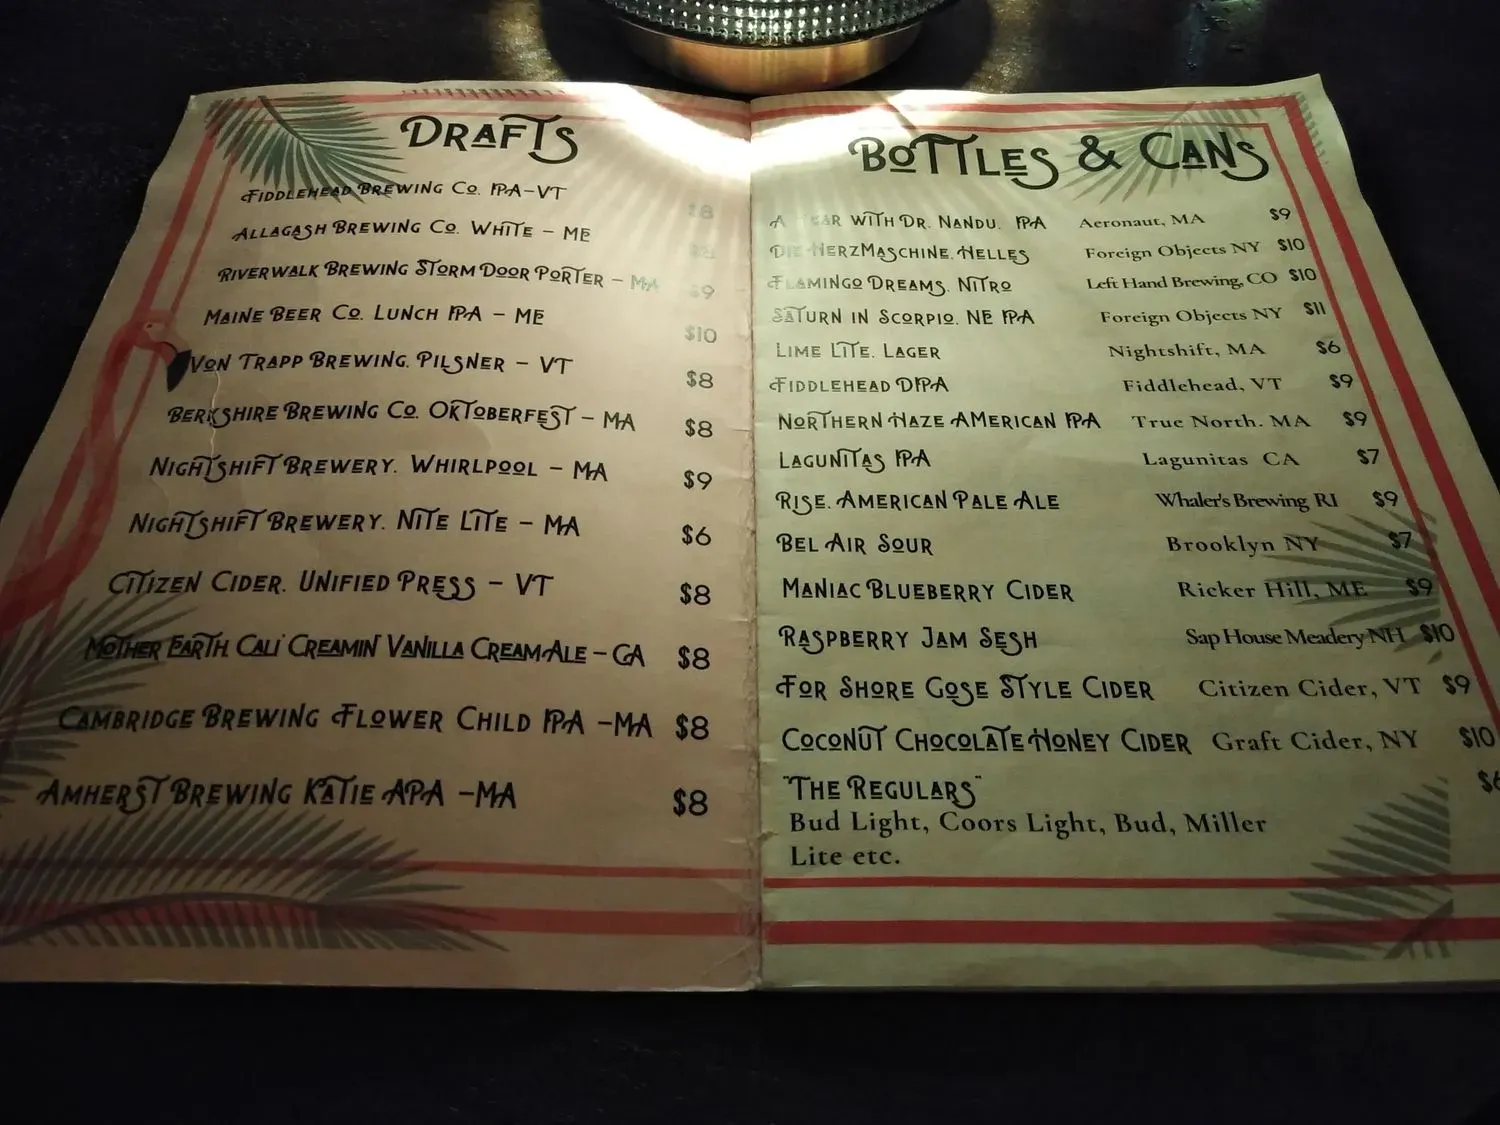 DRAFTS
FIDDLEHEAD BREWING CO. IPA-VT $8
ALLAGASH BREWING CO. WHITE - ME
RIVERWALK BREWING STORM DOOR PORTER - MA $9
MAINE BEER CO. LUNCH IPA - ME $10
VON TRAPP BREWING. PILSNER - VT $8
BERKSHIRE BREWING CO. OKTOBERFEST - MA $8
NIGHTSHIFT BREWERY. WHIRLPOOL - MA $9
NIGHTSHIFT BREWERY. NITE LITE - MA $6
CITIZEN CIDER. UNIFIED PRESS - VT $8
MOTHER EARTH CALI CREAMIN' VANILLA CREAM ALE - CA $8
CAMBRIDGE BREWING FLOWER CHILD IPA -MA $8
AMHERST BREWING KATIE APA -MA $8
BOTTLES & CANS
A WITH DR. NANDU. IPA Aeronaut, MA $9
DIE HERZMASCHINE. HELLES Foreign Objects NY $10
FLAMINGO DREAMS. NITRO Left Hand Brewing, CO $10
SATURN IN SCORPIO. NE IPA Foreign Objects NY $11
LIME LITE. LAGER Nightshift, MA $6
FIDDLEHEAD DIPA Fiddlehead, VT $9
NORTHERN HAZE AMERICAN IPA True North. MA $9
LAGUNITAS IPA Lagunitas CA $7
RISE. AMERICAN PALE ALE Whaler's Brewing RI $9
BEL AIR SOUR Brooklyn NY $7
MANIAC BLUEBERRY CIDER Ricker Hill, ME $9
RASPBERRY JAM SESH Sap House Meadery NH $10
FOR SHORE GOSE STYLE CIDER Citizen Cider, VT $9
COCONUT CHOCOLATE HONEY CIDER Graft Cider, NY $10
"THE REGULARS" $6
Bud Light, Coors Light, Bud, Miller
Lite etc.